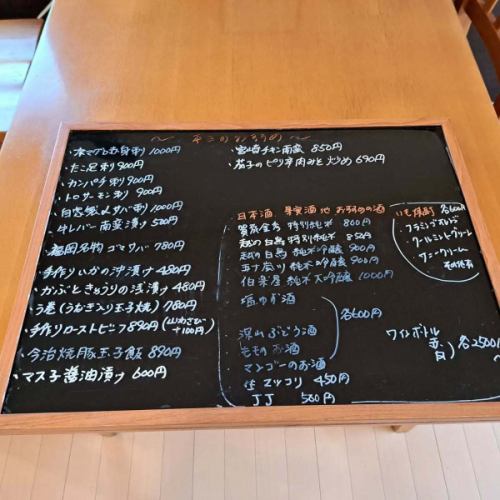 〜 本日のおすすめ 〜
・本マグロ赤身刺 1000円
・たこ足刺 900円
・カンパチ刺 900円
・トロサーモン刺 900円
・自家製〆サバ刺 1100円
・牛レバー南蛮漬け 580円
・福岡名物ゴマサバ 780円
・手作りいかの沖漬け 480円
・かぶときゅうりの浅漬け 480円
・う巻(うなぎ入り玉子焼) 780円
・手作りローストビーフ 890円(山わさび +100円)
・今治焼豚玉子飯 890円
・マス子醤油漬け 600円
・宮崎チキン南蛮 850円
・茄子のピリ辛肉みそ炒め 690円
日本酒、果実酒他 おすすめの酒
特別純米 800円
越の白鳥 特別純米 850円
越の白鳥 純米吟醸 900円
純米吟醸 900円
伯楽星 純米大吟醸 1000円
塩ゆず酒
深山ぶどう酒
ももの お酒
マンゴーのお酒
各600円
生マッコリ 450円
JJ 500円
いも焼酎 各600円
フラミンゴオレンジ
クールミントグリーン
サニークリーム
その他有
ワインボトル
赤
白
各2500円